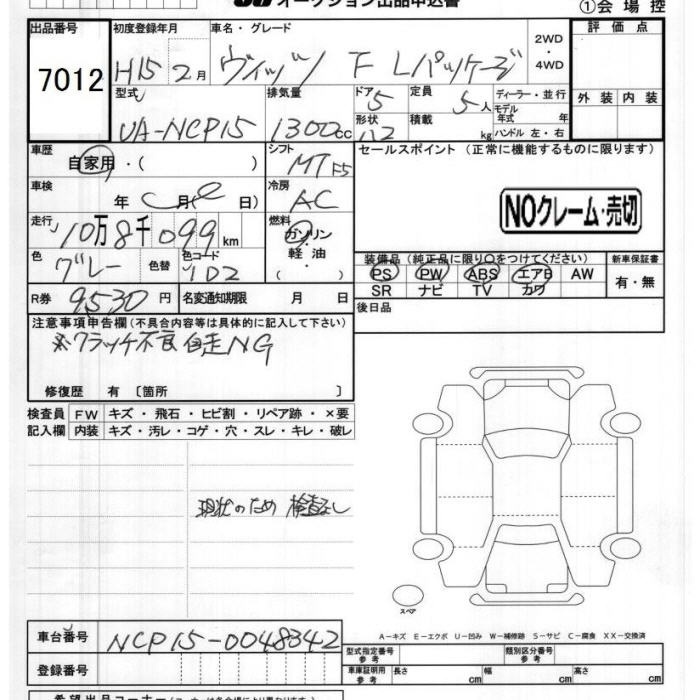 オークション出品申込書
①会場控
出品番号 初度登録年月 車名・グレード 2WD・4WD 評価点
7012 H15 2月 ヴィッツ F Lパッケージ
型式 排気量 ドア 5 定員 5人 ディーラー・並行 外装 内装
モデル年式 年
UA-NCP15 1300cc 形状 積載 kg ハンドル 左・右
車歴 自家用・( ) シフト MT F5 セールスポイント (正常に機能するものに限ります)
車検 年 月 日) 冷房 AC
NOクレーム・売切
走行 10万8千099km 燃料 ガソリン・軽油・( )
色 グレー 色替 色コード 1D2 装備品 (純正品に限り○をつけてください) 新車保証書
PS PW ABS エアB AW 有・無
SR ナビ TV カワ
R券 9530円 名変通知期限 月 日 後日品
注意事項申告欄 (不具合内容等は具体的に記入して下さい)
※クラッチ不良 自走NG
修復歴 有 〔箇所 〕
検査員 FW キズ・飛石・ヒビ割・リペア跡・×要
記入欄 内装 キズ・汚レ・コゲ・穴・スレ・キレ・破レ
現状のため 検査なし
スペア
A－キズ E－エクボ U－凹み W－補修跡 S－サビ C－腐食 XX－交換済
車台番号 NCP15-0048342 型式指定番号 参考 類別区分番号 参考
登録番号 車庫証明用 参考 長さ cm 幅 cm 高さ cm
希望出品コーナー